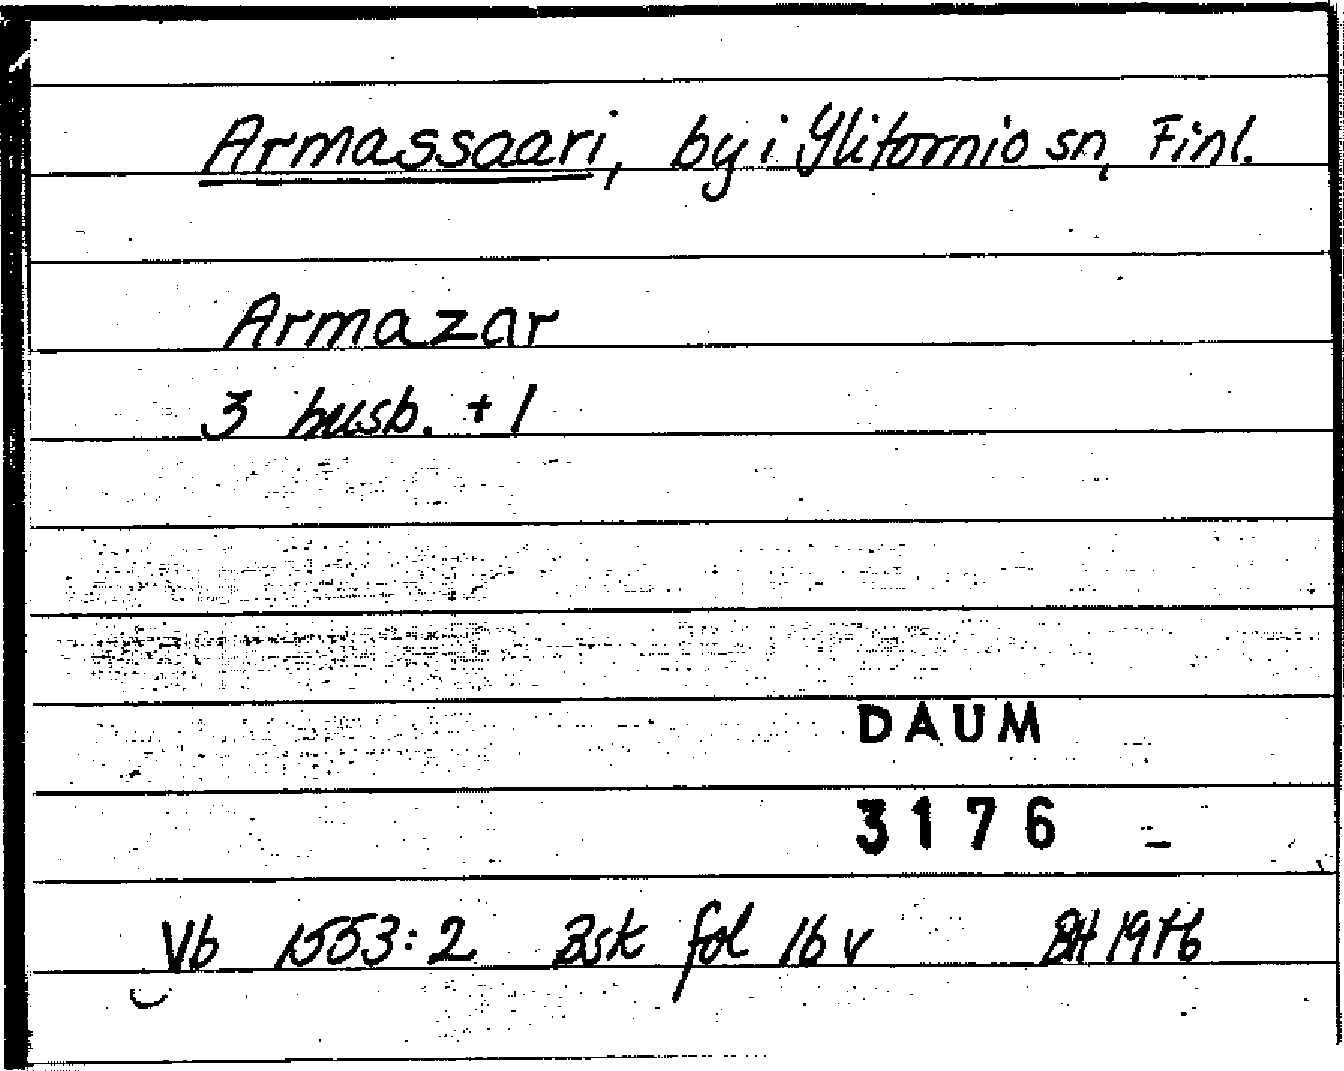 Armassaari, by i Ylitornio sn, Finl.
Armazar
3 busb. + 1
DAUM
3176
Vb 1553:2 Bsk fol 16 v BH 1976